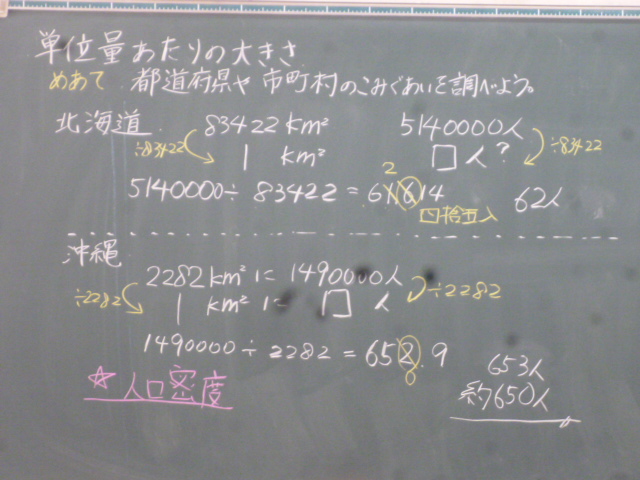 単位量あたりの大きさ
めあて 都道府県や市町村のこみぐあいを調べよう。
北海道 83422km² 5140000人
÷83422 1 km² □人? ÷83422
2
5140000÷ 83422 = 61.614 62人
四捨五入
沖縄
2282km²に 1490000人
÷2282 1 km²に □ 人 ÷2282
1490000÷2282 = 652.9 653人
0
☆人口密度 約650人